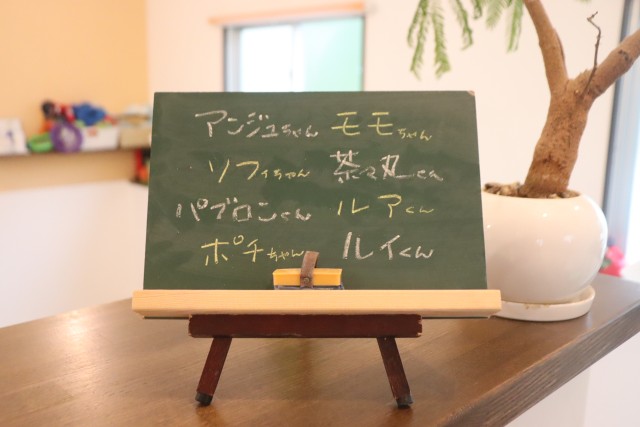 アンジュちゃん モモちゃん
ソフィちゃん 茶々丸くん
パブロンくん ルアくん
ポチちゃん ルイくん